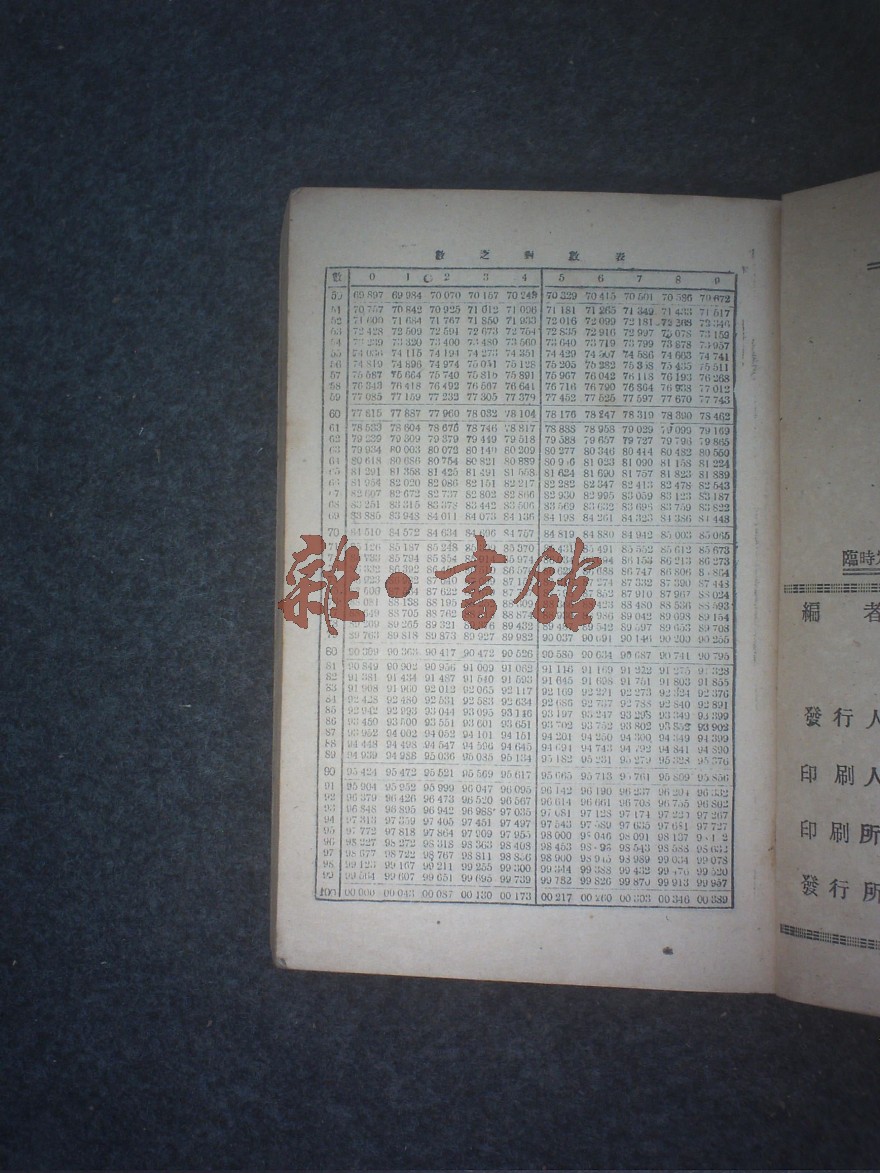 數 之 對 數 表
數 0 1 2 3 4 5 6 7 8 9
50 69 897 69 984 70 070 70 157 70 243 70 329 70 415 70 501 70 586 70 672
51 70 757 70 842 70 925 71 012 71 096 71 181 71 265 71 349 71 433 71 517
52 71 600 71 684 71 767 71 850 71 933 72 016 72 099 72 181 72 263 72 346
53 72 428 72 509 72 591 72 673 72 754 72 835 72 916 72 997 73 078 73 159
54 73 239 73 320 73 400 73 480 73 560 73 640 73 719 73 799 73 878 73 957
55 74 036 74 115 74 194 74 273 74 351 74 429 74 507 74 586 74 663 74 741
56 74 819 74 896 74 974 75 051 75 128 75 205 75 282 75 358 75 435 75 511
57 75 587 75 664 75 740 75 815 75 891 75 967 76 042 76 118 76 193 76 268
58 76 343 76 418 76 492 76 567 76 641 76 716 76 790 76 864 76 938 77 012
59 77 085 77 159 77 232 77 305 77 379 77 452 77 525 77 597 77 670 77 743
60 77 815 77 887 77 960 78 032 78 104 78 176 78 247 78 319 78 390 78 462
61 78 533 78 604 78 675 78 746 78 817 78 888 78 958 79 029 79 099 79 169
62 79 239 79 309 79 379 79 449 79 518 79 588 79 657 79 727 79 796 79 865
63 79 934 80 003 80 072 80 140 80 209 80 277 80 346 80 414 80 482 80 550
64 80 618 80 686 80 754 80 821 80 889 80 956 81 023 81 090 81 158 81 224
65 81 291 81 358 81 425 81 491 81 558 81 624 81 690 81 757 81 823 81 889
66 81 954 82 020 82 086 82 151 82 217 82 282 82 347 82 413 82 478 82 543
67 82 607 82 672 82 737 82 802 82 866 82 930 82 995 83 059 83 123 83 187
68 83 251 83 315 83 378 83 442 83 506 83 569 83 632 83 698 83 759 83 822
69 83 885 83 948 84 011 84 073 84 136 84 198 84 261 84 323 84 386 84 448
70 84 510 84 572 84 634 84 696 84 757 84 819 84 880 84 942 85 003 85 065
85 187 85 248 85 370 85 491 85 552 85 612 85 673
85 794 85 854 85 974 86 153 86 213 86 273
86 392 86 806 86 864
87 332 87 390 87 448
87 622 87 852 87 910 87 967 88 024
88 138 88 195 88 423 88 480 88 536 88 593
88 705 88 762 88 986 89 042 89 098 89 154
89 265 89 321 89 432 89 542 89 597 89 653 89 708
89 763 89 818 89 873 89 927 89 982 90 037 90 091 90 146 90 200 90 255
80 90 309 90 363 90 417 90 472 90 526 90 580 90 634 90 687 90 741 90 795
81 90 849 90 902 90 956 91 009 91 062 91 116 91 169 91 222 91 275 91 328
82 91 381 91 434 91 487 91 540 91 593 91 645 91 698 91 751 91 803 91 855
83 91 908 91 960 92 012 92 065 92 117 92 169 92 221 92 273 92 324 92 376
84 92 428 92 480 92 531 92 583 92 634 92 686 92 737 92 788 92 840 92 891
85 92 942 92 993 93 044 93 095 93 146 93 197 93 247 93 298 93 349 93 399
86 93 450 93 500 93 551 93 601 93 651 93 702 93 752 93 802 93 852 93 902
87 93 952 94 002 94 052 94 101 94 151 94 201 94 250 94 300 94 349 94 399
88 94 448 94 498 94 547 94 596 94 645 94 694 94 743 94 792 94 841 94 890
89 94 939 94 988 95 036 95 085 95 134 95 182 95 231 95 279 95 328 95 376
90 95 424 95 472 95 521 95 569 95 617 95 665 95 713 95 761 95 809 95 856
91 95 904 95 952 95 999 96 047 96 095 96 142 96 190 96 237 96 284 96 332
92 96 379 96 426 96 473 96 520 96 567 96 614 96 661 96 708 96 755 96 802
93 96 848 96 895 96 942 96 988 97 035 97 081 97 128 97 174 97 220 97 267
94 97 313 97 359 97 405 97 451 97 497 97 543 97 589 97 635 97 681 97 727
95 97 772 97 818 97 864 97 909 97 955 98 000 98 046 98 091 98 137
96 98 227 98 272 98 318 98 363 98 408 98 453 98 498 98 543 98 588 98 632
97 98 677 98 722 98 767 98 811 98 856 98 900 98 945 98 989 99 034 99 078
98 99 123 99 167 99 211 99 255 99 300 99 344 99 388 99 432 99 476 99 520
99 99 564 99 607 99 651 99 695 99 739 99 782 99 826 99 870 99 913 99 957
100 00 000 00 043 00 087 00 130 00 173 00 217 00 260 00 303 00 346 00 389
雜·書館
臨時
編 者
發行人
印刷人
印刷所
發行所